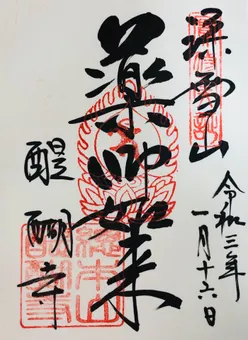 深雪山
令和三年
一月十六日
薬師如来
醍醐寺